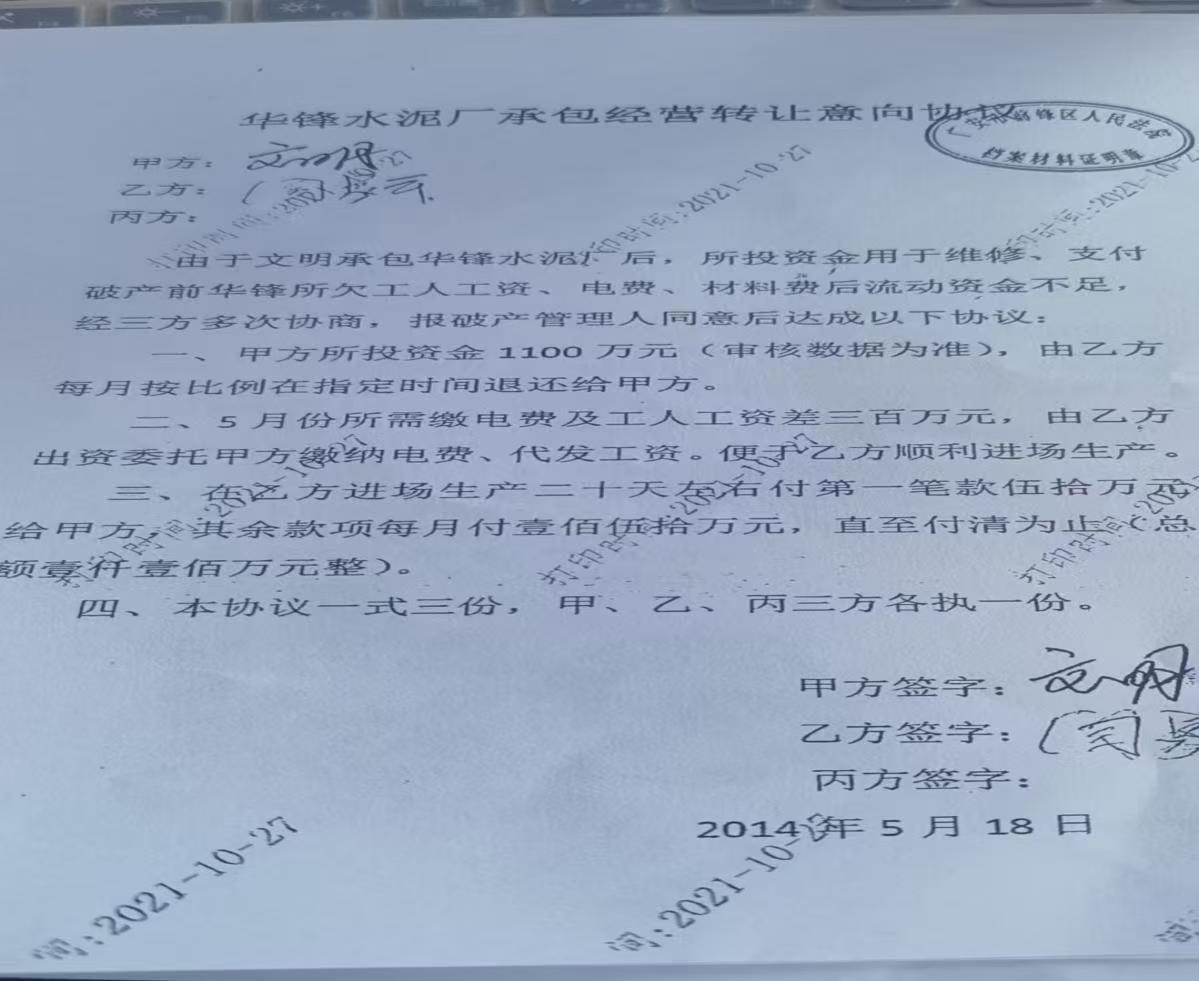 华锋水泥厂承包经营转让意向协议
广安市前锋区人民法院
档案材料证明章
甲方：文明
乙方：
丙方：
由于文明承包华锋水泥厂后，所投资金用于维修、支付
破产前华锋所欠工人工资、电费、材料费后流动资金不足，
经三方多次协商，报破产管理人同意后达成以下协议：
一、甲方所投资金1100万元（审核数据为准），由乙方
每月按比例在指定时间退还给甲方。
二、5月份所需缴电费及工人工资差三百万元，由乙方
出资委托甲方缴纳电费、代发工资。便于乙方顺利进场生产。
三、在乙方进场生产二十天左右付第一笔款伍拾万元
给甲方，其余款项每月付壹佰伍拾万元，直至付清为止（总
额壹仟壹佰万元整）。
四、本协议一式三份，甲、乙、丙三方各执一份。
甲方签字：文明
乙方签字：
丙方签字：
2014年5月18日
打印时间:2021-10-27
打印时间:2021-10-27
打印时间:2021-10-2
打印时间:2021-10-27
打印时间:2021-10-27
打印时间:2021-10-
间:2021-10-27
间:2021-10-27
间